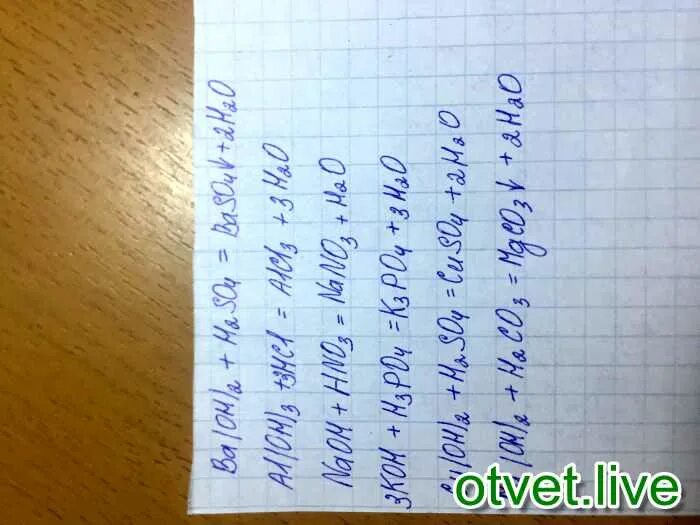 Ba(OH)2 + H2SO4 = BaSO4↓ + 2H2O
Al(OH)3 + 3HCl = AlCl3 + 3H2O
NaOH + HNO3 = NaNO3 + H2O
3KOH + H3PO4 = K3PO4 + 3H2O
(OH)2 + H2SO4 = CuSO4 + 2H2O
(OH)2 + H2CO3 = MgCO3↓ + 2H2O
otvet.live